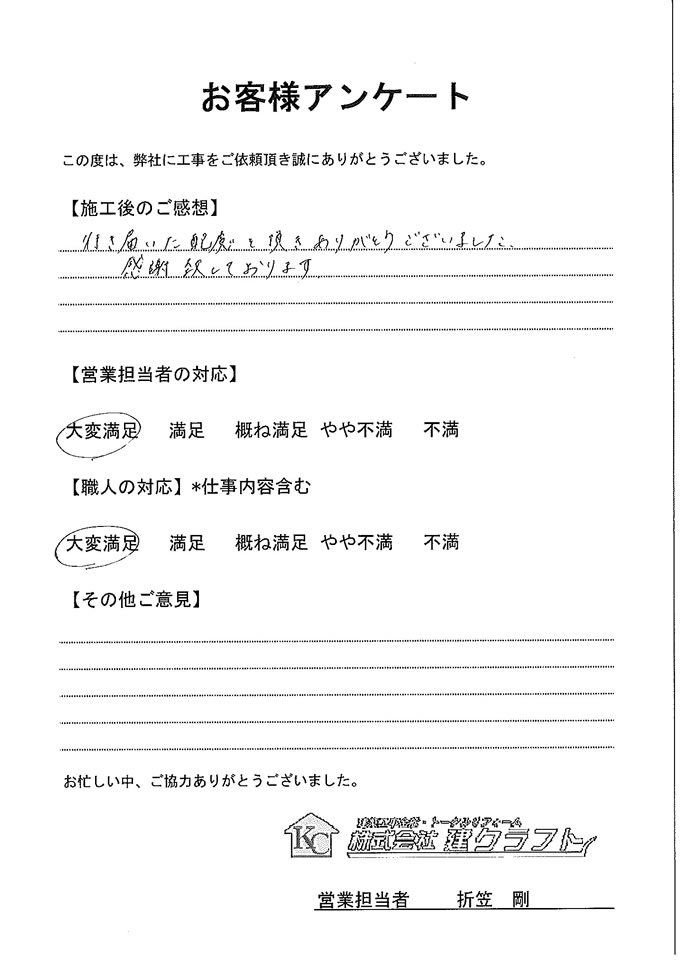 お客様アンケート
この度は、弊社に工事をご依頼頂き誠にありがとうございました。
【施工後のご感想】
行き届いた配慮を頂きありがとうございました。
感謝致しております
【営業担当者の対応】
大変満足 満足 概ね満足 やや不満 不満
【職人の対応】*仕事内容含む
大変満足 満足 概ね満足 やや不満 不満
【その他ご意見】
お忙しい中、ご協力ありがとうございました。
KC
株式会社 建クラフト
営業担当者 折笠 剛